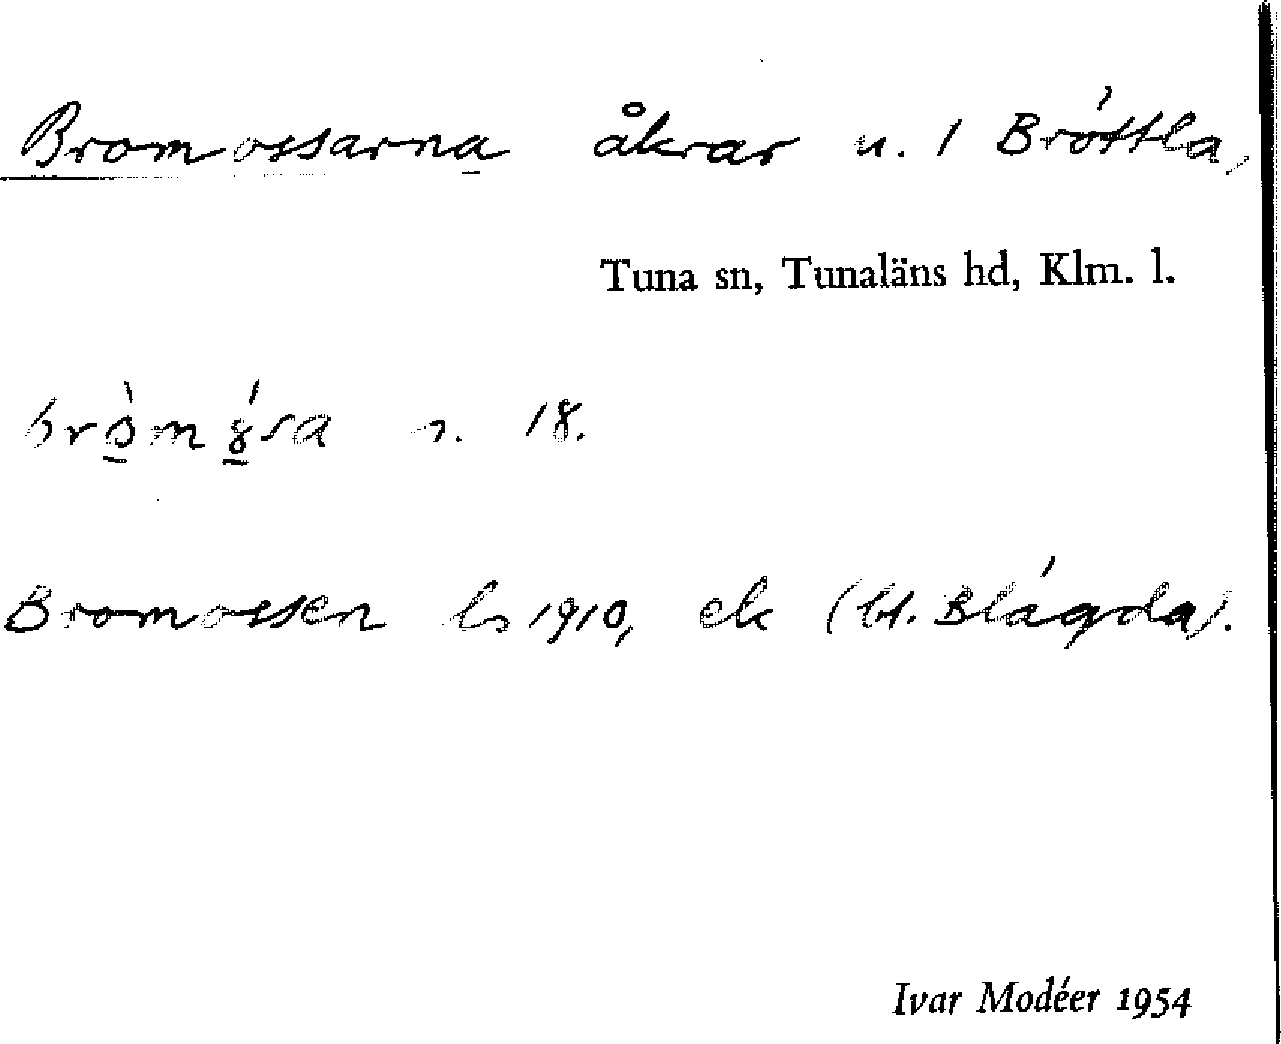 Bromossarna åkrar u. 1 Bróttla,
Tuna sn, Tunaläns hd, Klm. l.
n. 18.
Bromossen ls 1910, ek (bl. Blágda).
Ivar Modéer 1954